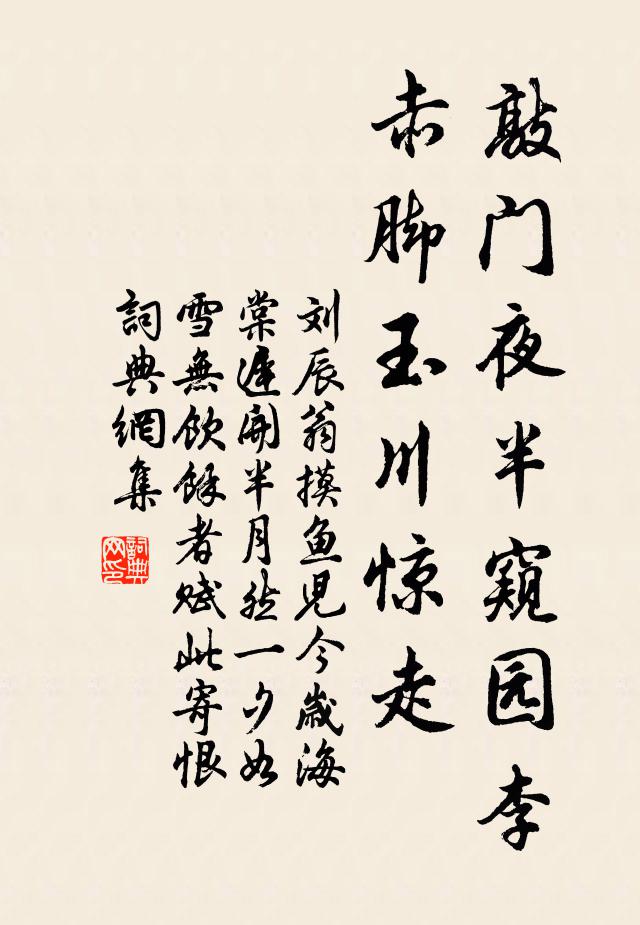 敲门夜半窥园李
赤脚玉川惊走
刘辰翁摸鱼児今歲海
棠遲開半月然一夕如
雪無飲餘者赋此寄恨
詞典網集
詞典
网印